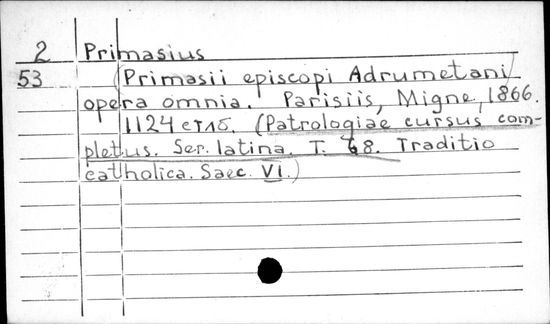 2 Primasius
53 (Primasii episcopi Adrumetani)
opera omnia. Parisiis, Migne, 1866.
1124 стлб. (Patrologiae cursus com-
pletus. Ser. latina. T. 68. Traditio
catholica. Saec. VI.)